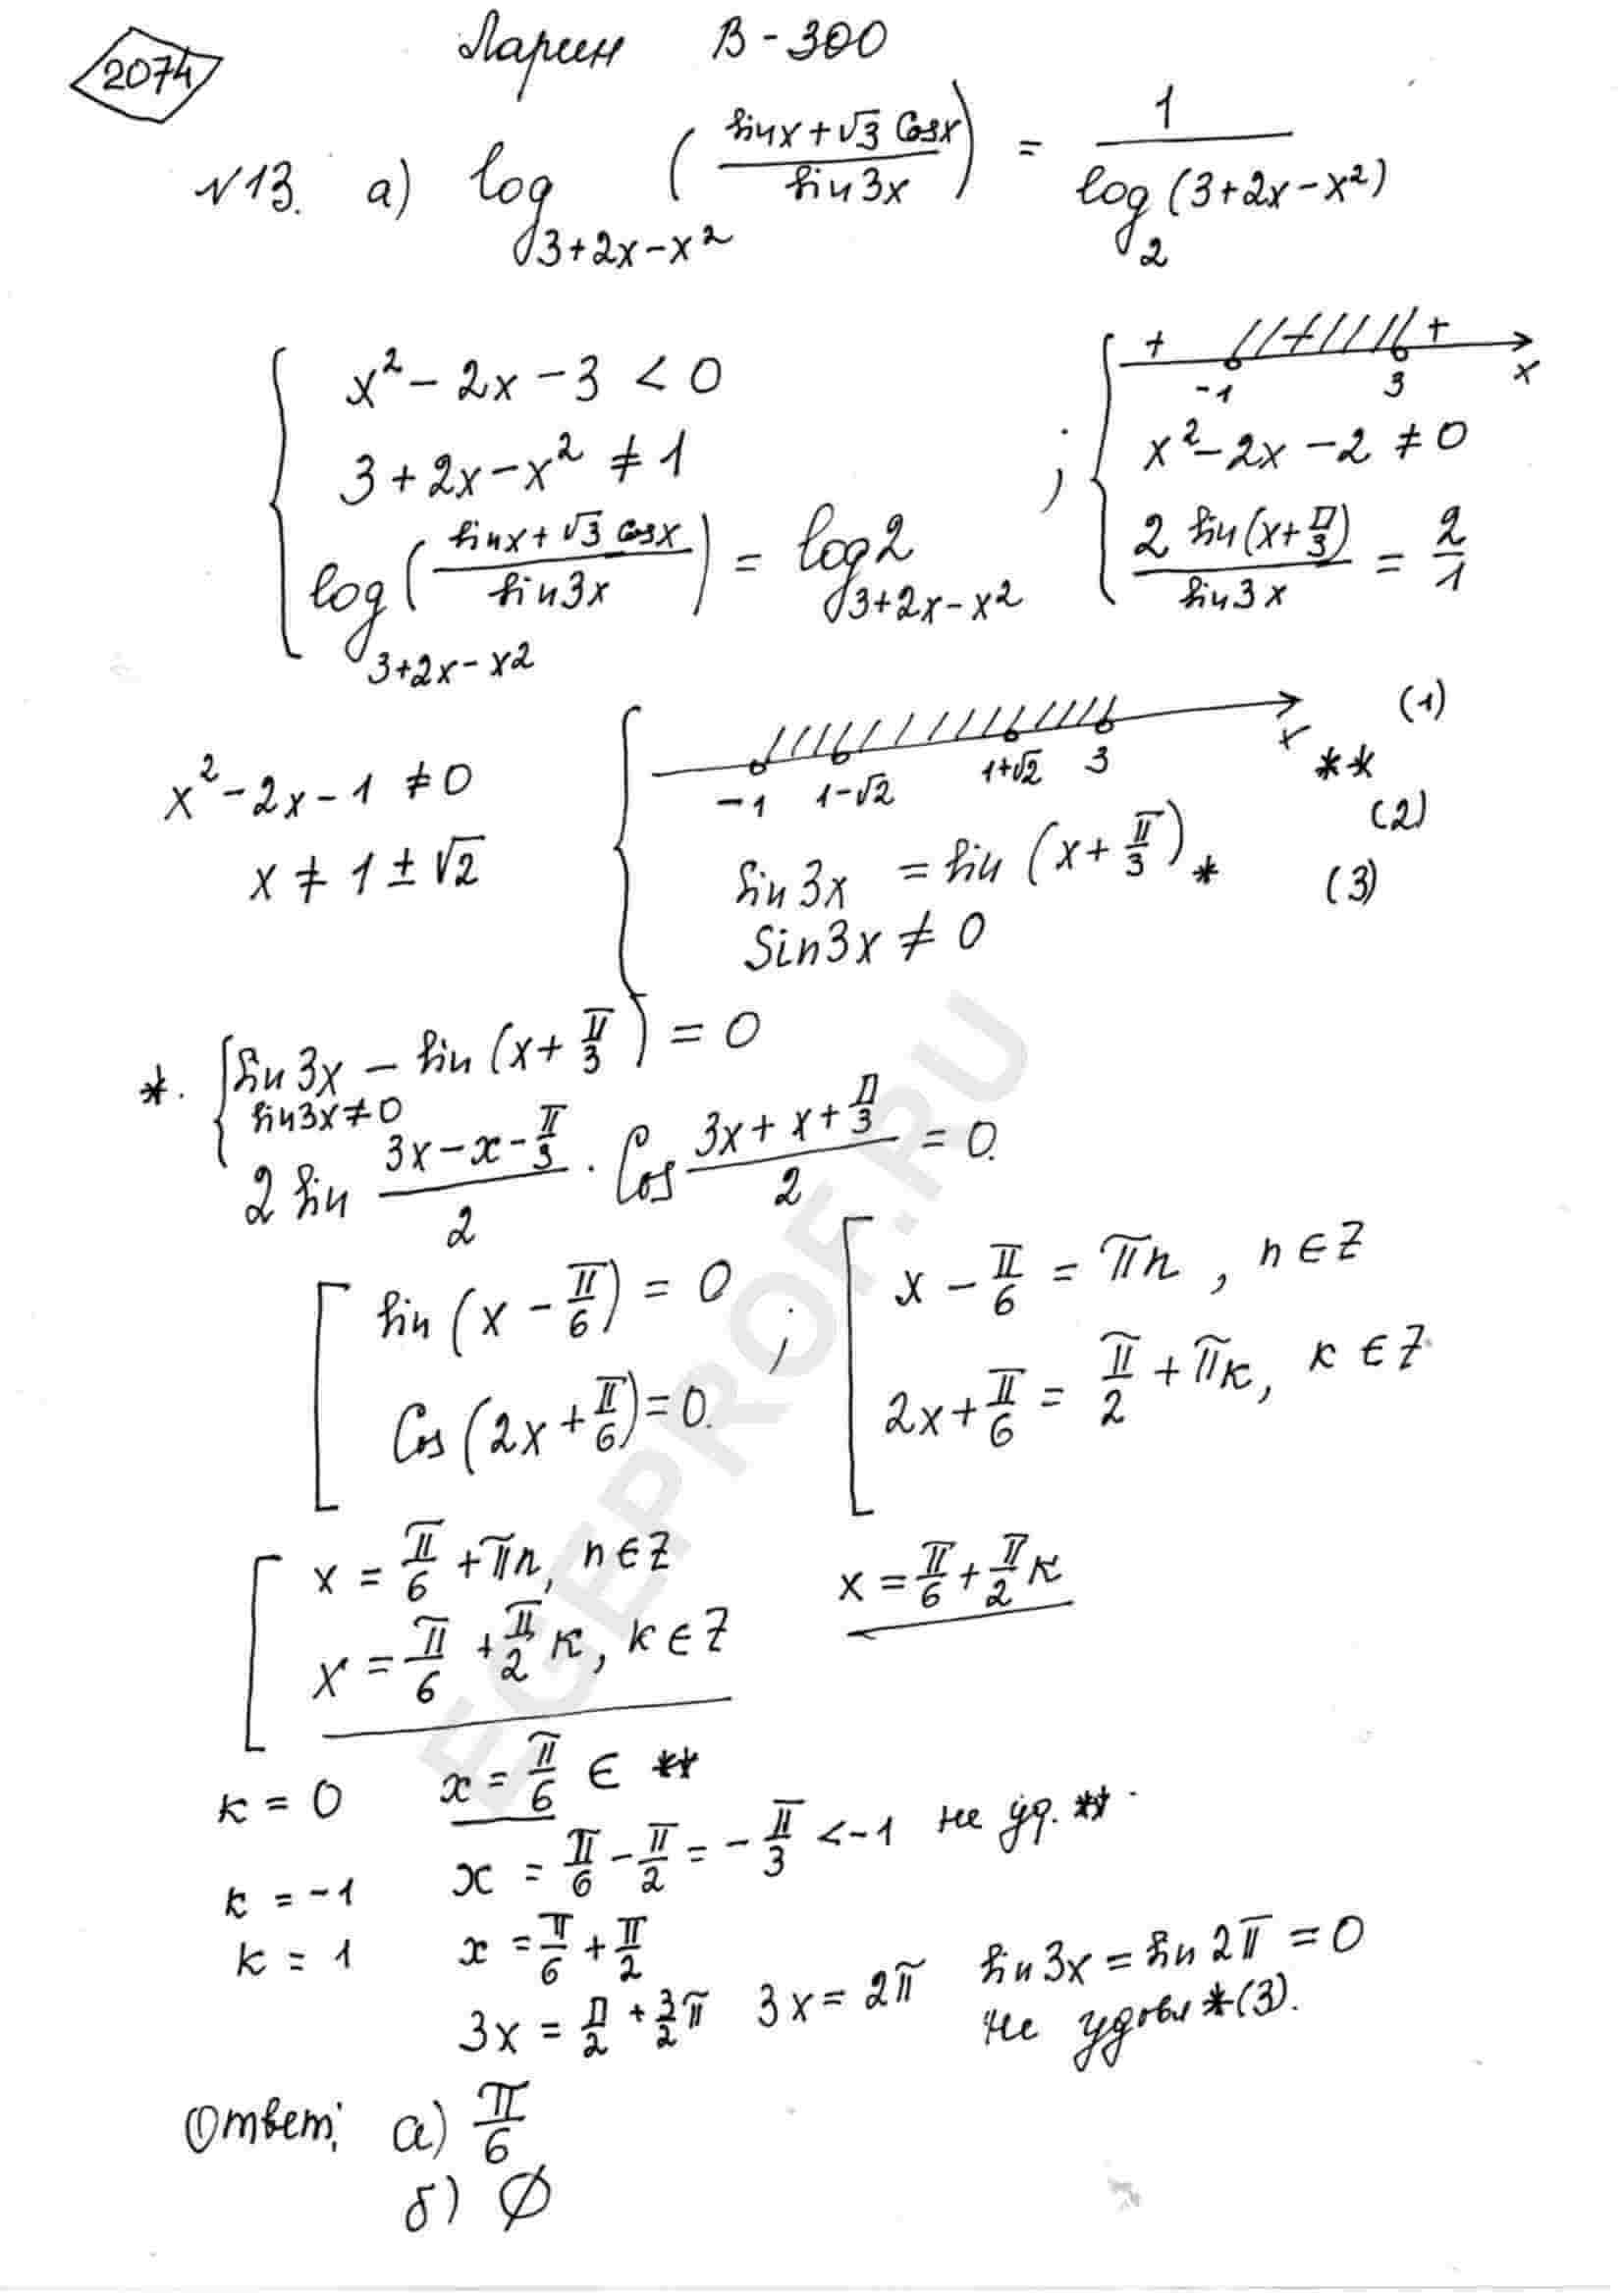 2074
Ларин В-300
№13. а) log_{3+2x-x²} ((sinx+√3 Cosx)/sin3x) = 1/log₂(3+2x-x²)
{ x² - 2x - 3 < 0
3 + 2x - x² ≠ 1
log_{3+2x-x²} ((sinx+√3 Cosx)/sin3x) = log_{3+2x-x²} 2 ;
{ + + + x
-1 3
x² - 2x - 2 ≠ 0
2 sin(x+π/3)/sin3x = 2/1
x² - 2x - 1 ≠ 0
x ≠ 1 ± √2
{ -1 1-√2 1+√2 3 x ** (1)
sin3x = sin(x+π/3) * (2)
Sin3x ≠ 0 (3)
*. { sin3x - sin(x+π/3) = 0
sin3x≠0
2 sin (3x-x-π/3)/2 · Cos (3x+x+π/3)/2 = 0.
[ sin(x - π/6) = 0
Cos(2x+π/6) = 0. ;
[ x - π/6 = πn, n ∈ Z
2x + π/6 = π/2 + πк, к ∈ Z
[ x = π/6 + πn, n ∈ Z
x = π/6 + π/2 к, к ∈ Z
x = π/6 + π/2 к
к = 0 x = π/6 ∈ **
к = -1 x = π/6 - π/2 = -π/3 < -1 не уд. **
к = 1 x = π/6 + π/2
3x = π/2 + 3/2 π 3x = 2π sin3x = sin2π = 0
не удовл *(3).
Ответ: а) π/6
б) ∅
EGEPROF.RU